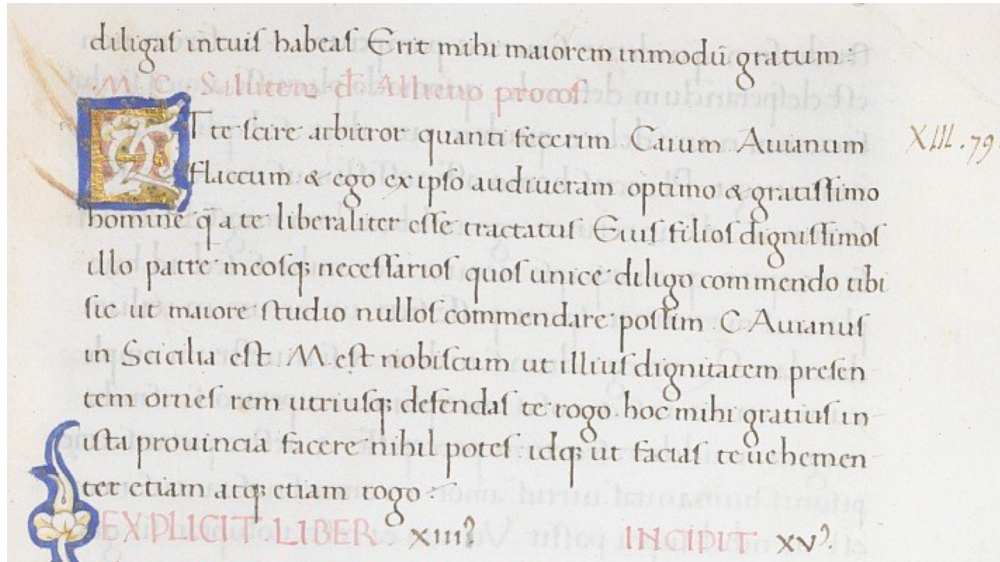 diligas in tuis habeas Erit mihi maiorem in modū gratum :
M. C. Salutem d Allieno procoſ
ET te scire arbitror quanti fecerim Caium Auianum
flaccum & ego ex ipso audiueram optimo & gratissimo
homine q̄ a te liberaliter esse tractatus Eius filios dignissimos
illo patre meosq; necessarios quos unice diligo commendo tibi
sic ut maiore studio nullos commendare possim C. Auianus
in Scicilia est. M est nobiscum ut illius dignitatem presen
tem ornes rem utriusq; defendas te rogo. hoc mihi gratius in
ista prouincia facere nihil potes idq; ut facias te uehemen
ter etiam atq; etiam rogo :
EXPLICIT LIBER XIIII INCIPIT XV.
XIII. 79.